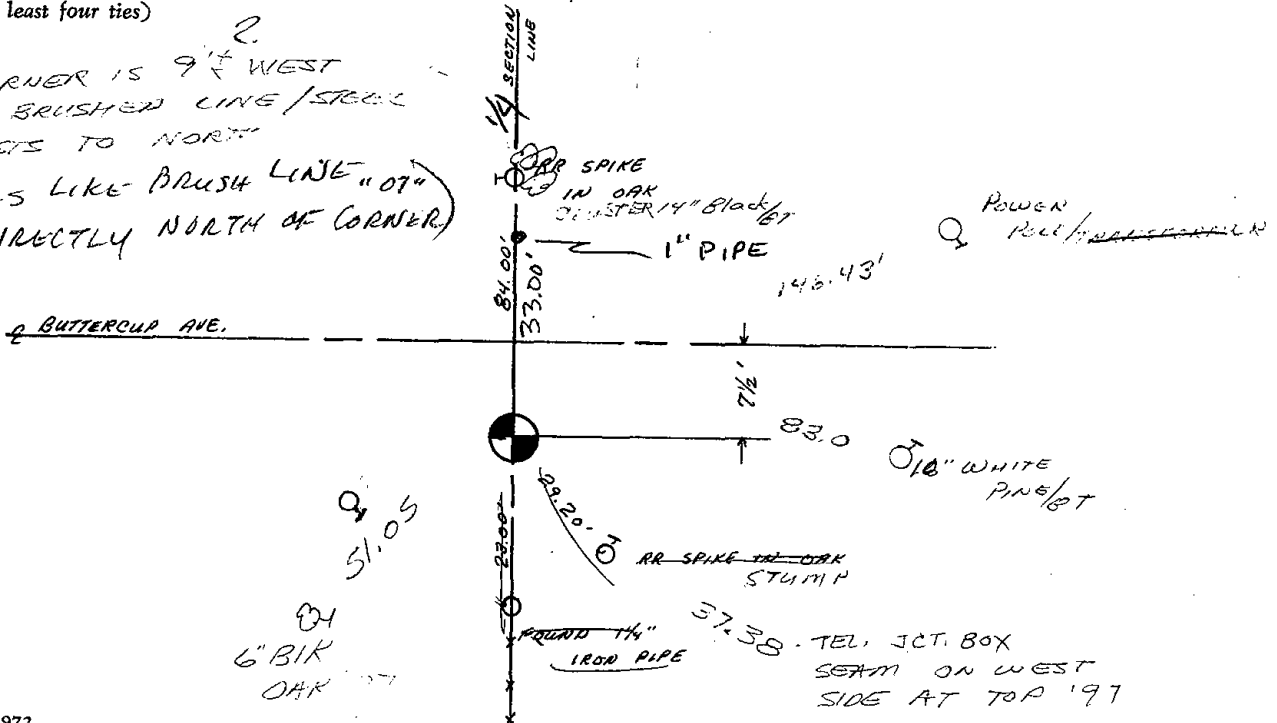 least four ties)
2.
RNER IS 9'± WEST
BRUSHED LINE/STEEL
STS TO NORTH
S LIKE BRUSH LINE "07"
RECTLY NORTH OF CORNER)
1/4 SECTION
LINE
RR SPIKE
IN OAK
CLUSTER 14" Black/BT
1" PIPE
84.00'
33.00'
POWER
POLE/
146.43'
℄ BUTTERCUP AVE.
7½'
83.0
18" WHITE
PINE/BT
51.05
29.20'
23.00'
RR SPIKE IN OAK
STUMP
6" BlK
OAK '97
FOUND 1¼"
IRON PIPE
37.38
TEL. JCT. BOX
SEAM ON WEST
SIDE AT TOP '97